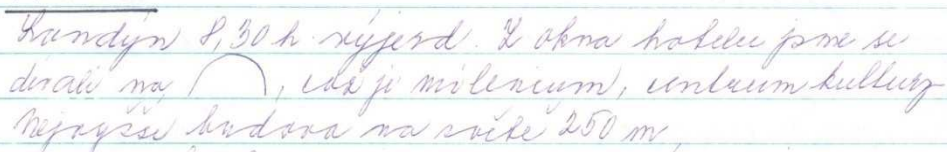 Londýn 8,30 h. výjezd. Z okna hotelu jsme se
dívali na, což je milenium, centrum kultury
Nejvyšší budova na světe 250 m,